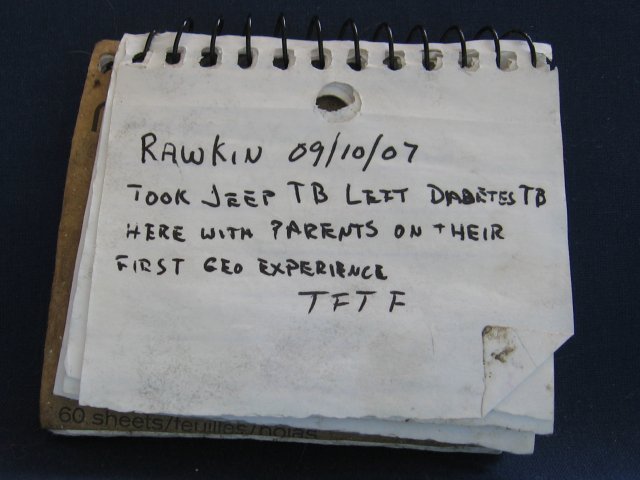 RAWKIN 09/10/07
TOOK JEEP TB LEFT DIABETES TB
HERE WITH PARENTS ON THEIR
FIRST GEO EXPERIENCE
TFTF
60 sheets/feuilles/hojas